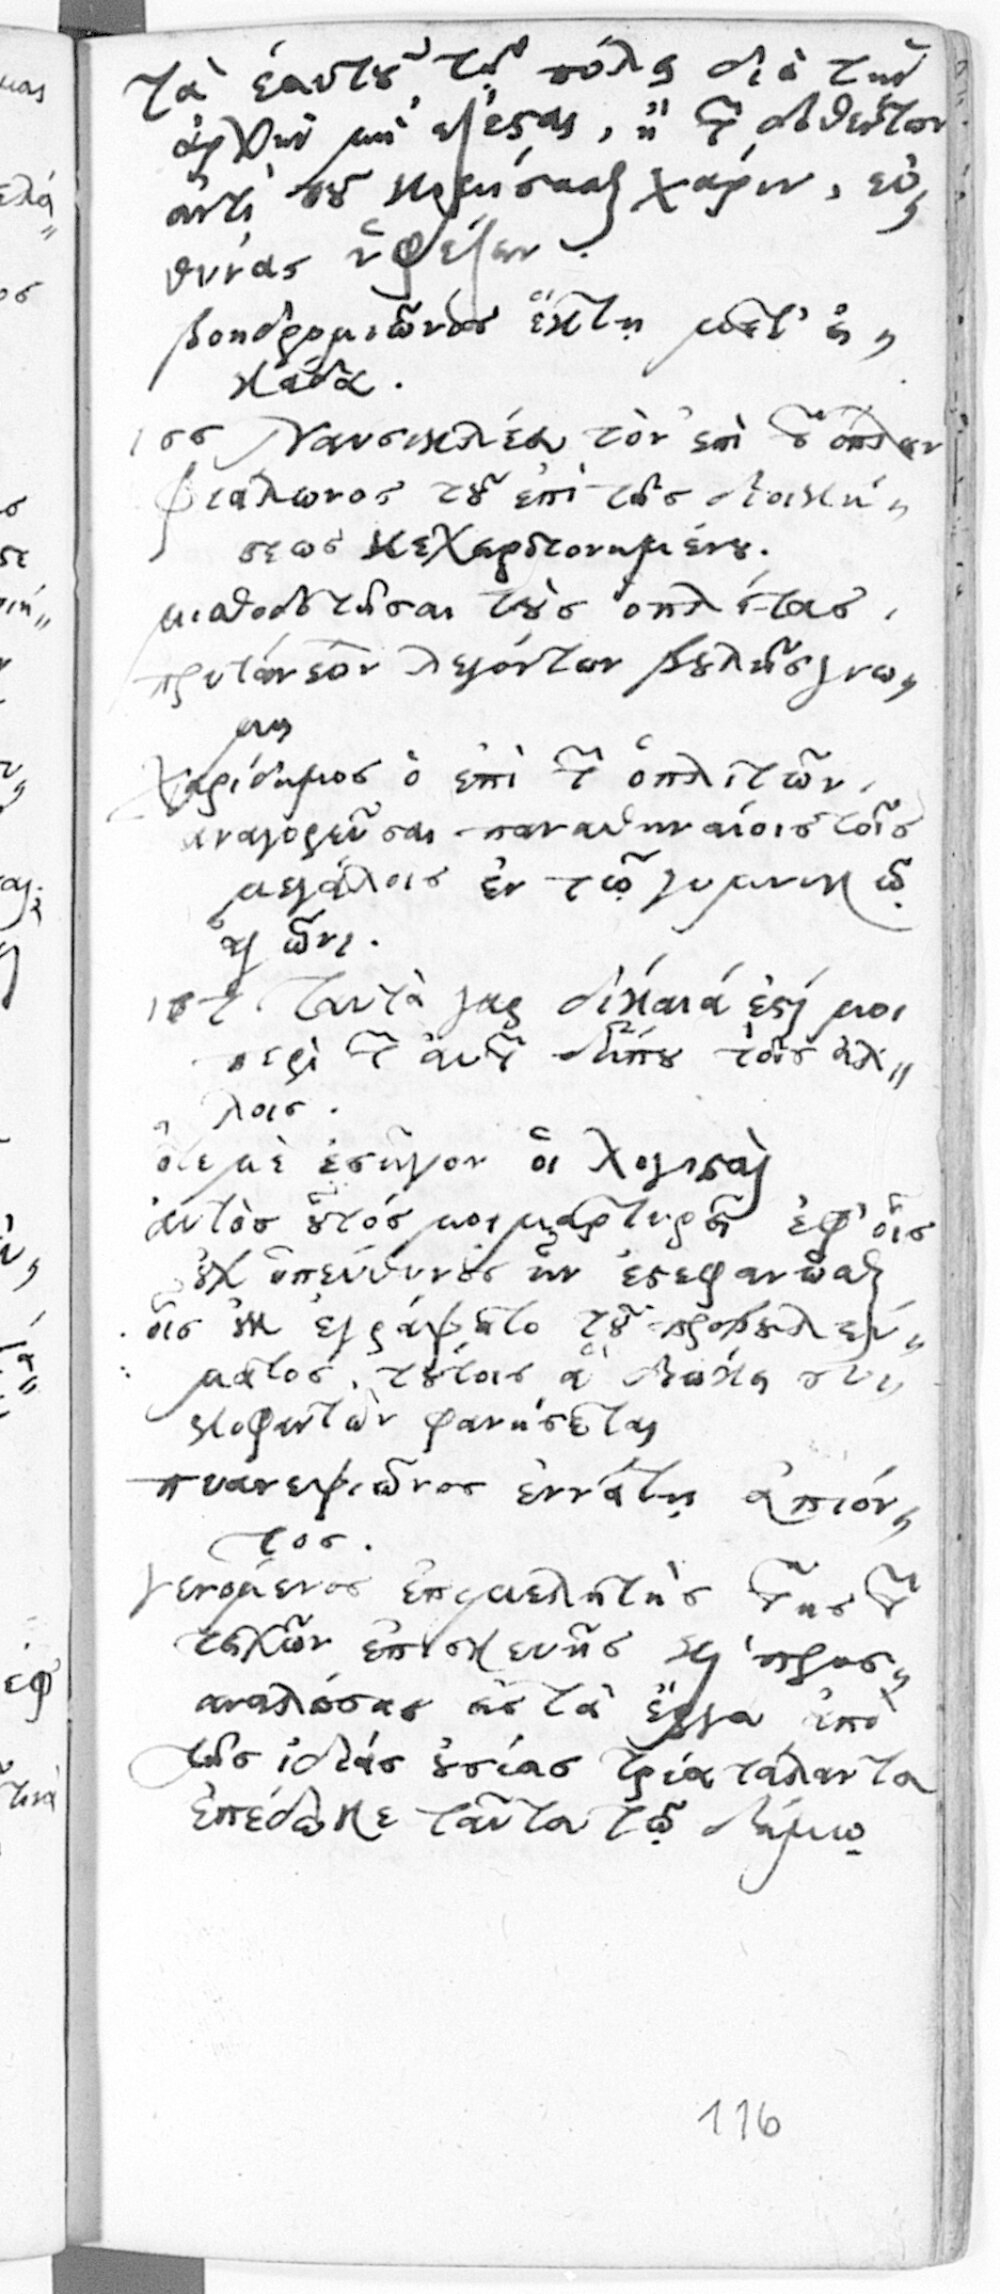 τὰ ἑαυτοῦ τῇ πόλει διὰ τὴν
ἀρχὴν μὴ ἐξέσται, ἢ τῶν δοθέντων
ἀντὶ τοῦ κομίσασθαι χάριν, εὐ,,
θύνας ὑφέξειν.
βοηδρομιῶνος ἕκτῃ μετ' εἰ,,
κάδα.
155 Ναυσικλέα τὸν ἐπὶ τῶν ὅπλων
Φιάλωνος τοῦ ἐπὶ τῆς διοική,,
σεως κεχειροτονημένου.
μισθοδοτῆσαι τοὺς ὁπλίτας.
πρυτάνεων λεγόντων βουλῆς γνώ,,
μῃ
Χαρίδημος ὁ ἐπὶ τῶν ὁπλιτῶν.
ἀναγορεῦσαι παναθηναίοις τοῖς
μεγάλοις ἐν τῷ γυμνικῷ
ἀγῶνι.
157. Ταυτὰ γὰρ δίκαιά ἐστί μοι
περὶ τῶν αὐτῶν δήπου τοῖς ἄλ,,
λοις.
ὅτε μὲ εἰσῆγον οἱ λογισταί
αὐτὸς οὗτός μοι μαρτυρεῖ ἐφ' οἷς
οὐχ ὑπεύθυνος ἦν ἐστεφανῶσθαι
οἷς οὐκ ἐγράψατο τοῦ προβουλεύ,,
ματος, τούτοις ἃ διώκει συ,,
κοφαντῶν φανήσεται
πυανεψιῶνος ἐννάτῃ ἀπιόν,,
τος.
γενόμενος ἐπιμελητὴς τῆς τῶν
τειχῶν ἐπισκευῆς καὶ προσ,,
αναλώσας εἰς τὰ ἔργα ἀπὸ
τῆς ἰδίας οὐσίας τρία τάλαντα
ἐπέδωκε ταῦτα τῷ δήμῳ
116